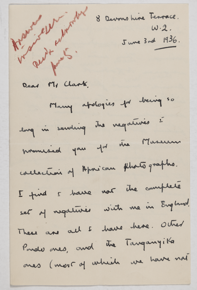 8 Devonshire Terrace.
W.2.
June 3rd 1936.
Dear Mr Clark,
Many apologies for being so
long in sending the negatives I
promised you for the Museum
collection of African Photographs.
I find I have not the complete
set of negatives with me in England.
These are all I have here. Other
ones, and the Tanganyika
ones (most of which we have not